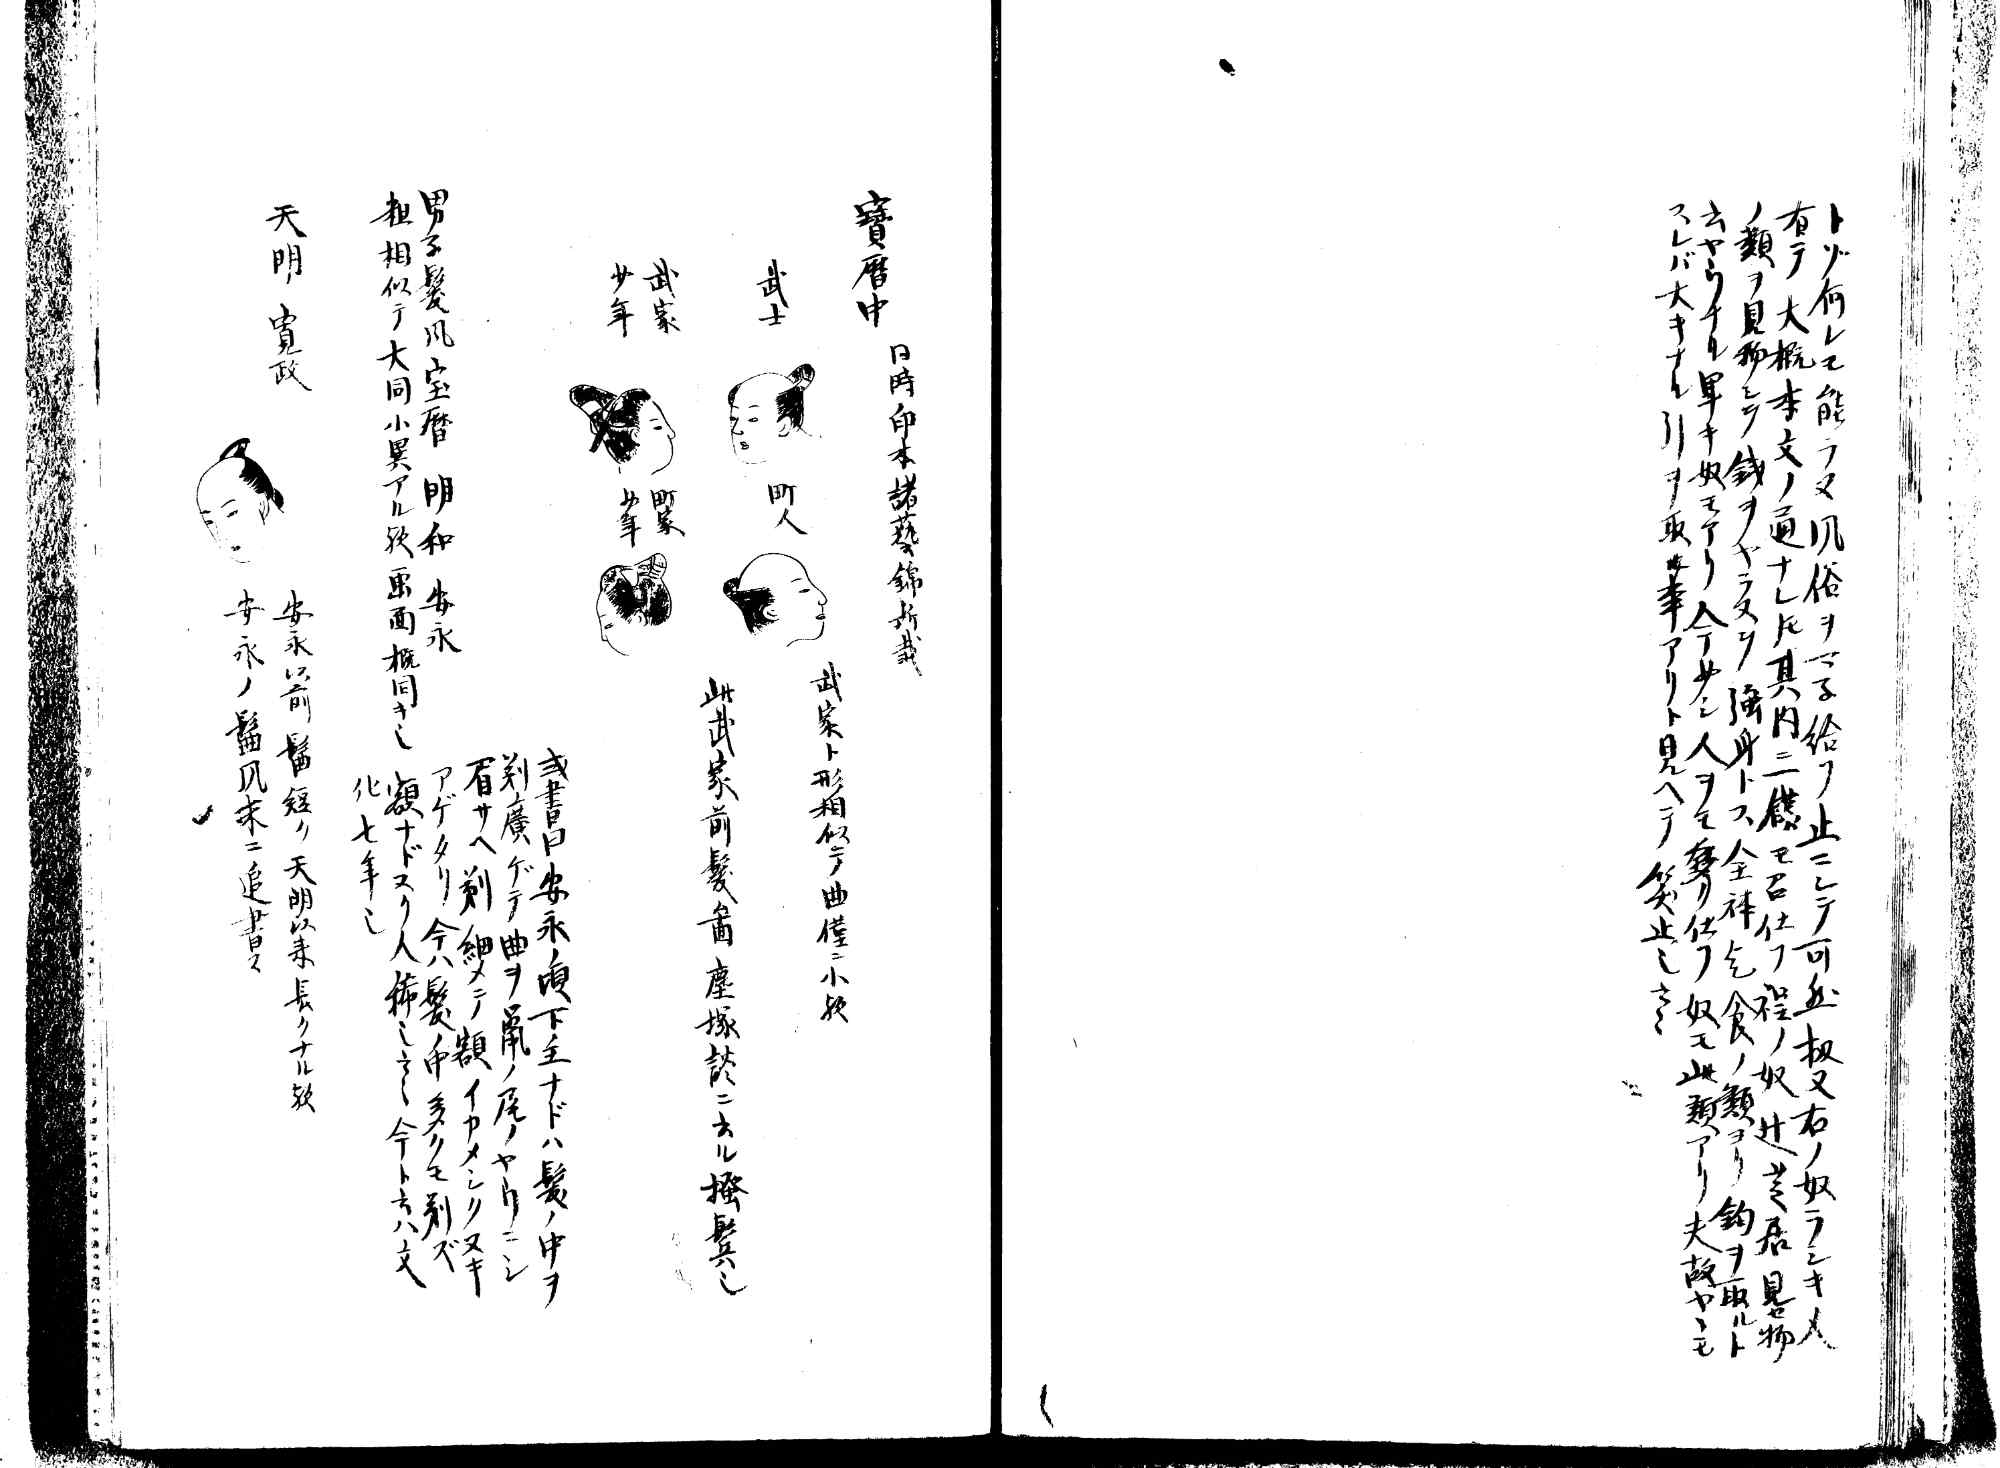 トゾ何レモ能ラヌ風俗ヲマネ給フ止ニシテ可然扨又右ノ奴ラシキ人
有テ大概本文ノ通ナレ𪜈其内ニ二様モ召仕フ裎ノ奴辻芝居見セ物
ノ類ヲ見物シテ銭ヲヤラヌヲ強身トス全体乞食ノ類ヨリ鉤ヲ取ルト
云ヤウナル軍キ奴モアリ今少シ人ヲモ撰リ仕フ奴モ此類アリ夫故ヤヽモ
スレバ大キナル引ヲ取事アリト見ヘテ笑止也云々
寳暦中
同時印本諸藝錦所載
武士
町人
武家ト形相似テ曲僅ニ小歟
武家
少年
町家
少年
此武家前髪畵塵塚談ニ云ル撥鬂也
或書曰安永ノ頃下主ナドハ髪ノ中ヲ
剃廣ゲテ曲ヲ鼠ノ尾ノヤウニシ
眉サヘ剃細メテ額イカメシクヌキ
アゲタリ今ハ髪ノ中多クモ剃ズ
額ナドヌク人稀也云々今ト云ハ文
化七年也
男子髪風宝暦明和安永
粗相似テ大同小異アル歟畵面概同キ也
天明寛政
安永以前髷短ク天明以来長クナル歟
安永ノ髷風末ニ追書ス